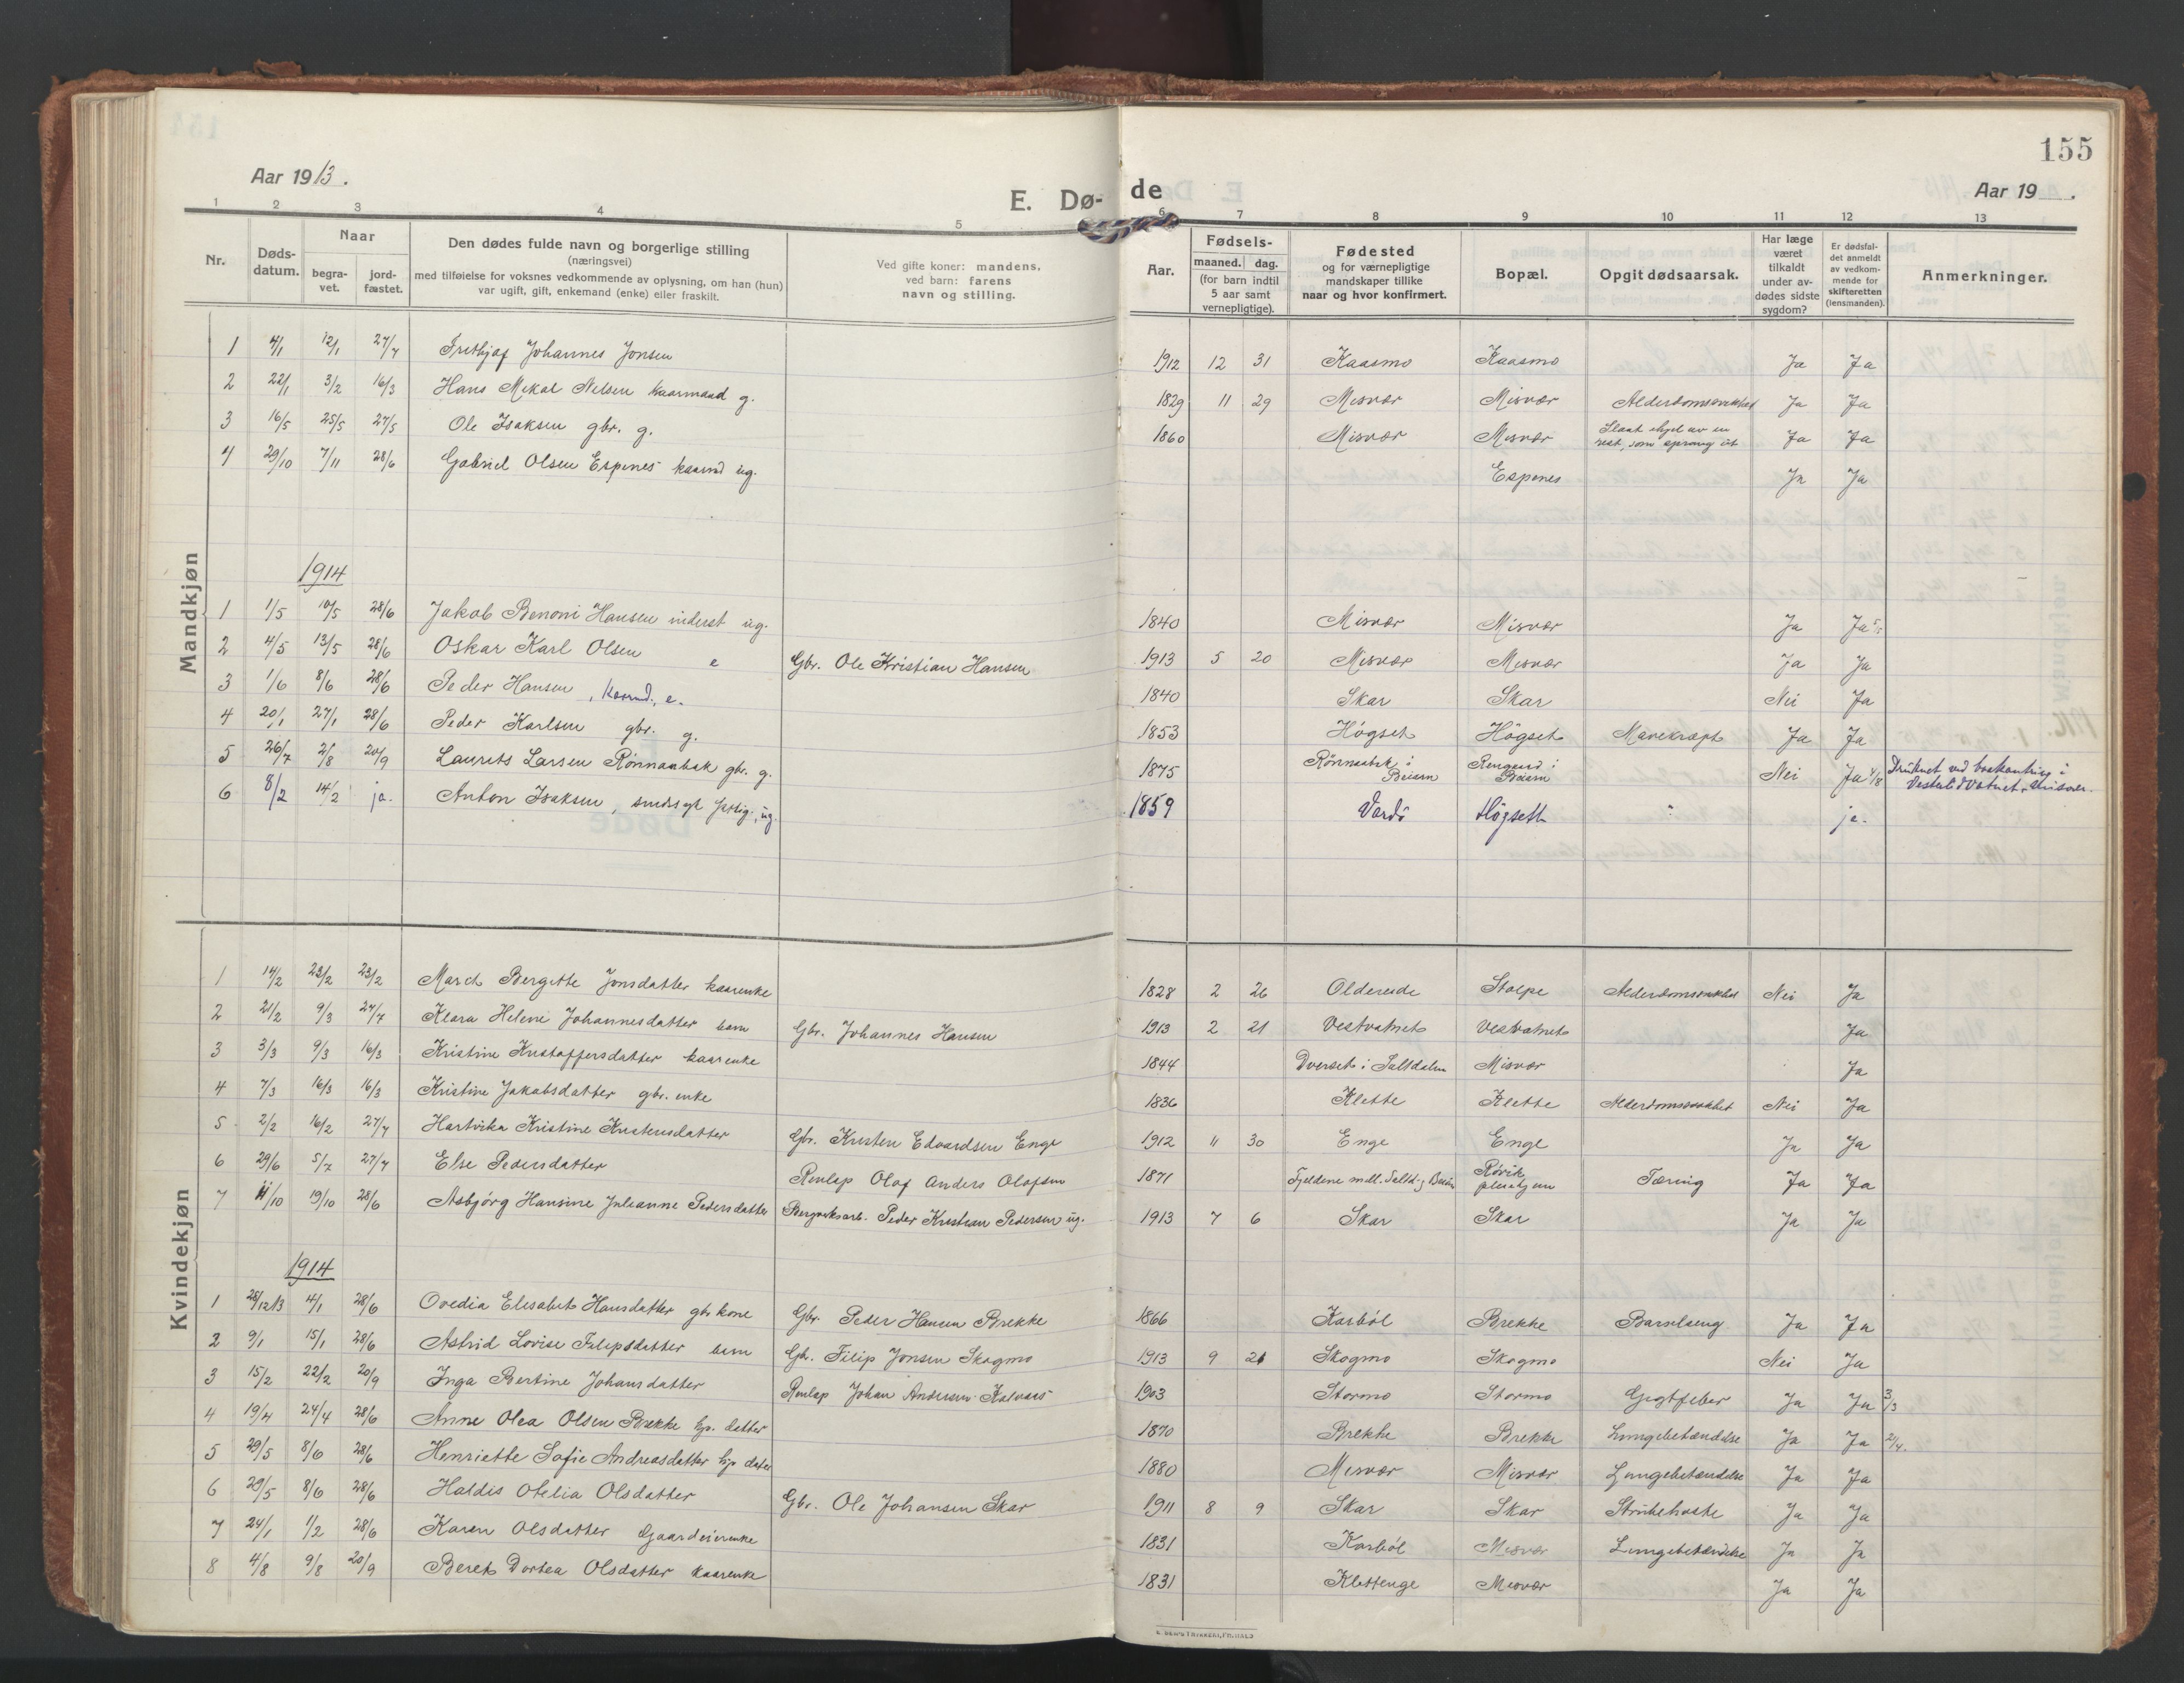 155
Aar 1913.
E. Dø-
de
Aar 19 .
1 2 3 4 5 6 7 8 9 10 11 12 13
Nr.
Døds-
datum.
Naar
begra-
vet.
jord-
fæstet.
Den dødes fulde navn og borgerlige stilling
(næringsvei)
med tilføielse for voksnes vedkommende av oplysning, om han (hun)
var ugift, gift, enkemand (enke) eller fraskilt.
Ved gifte koner: mandens,
ved barn: farens
navn og stilling.
Aar.
Fødsels-
maaned. dag.
(for barn indtil
5 aar samt
vernepligtige).
Fødested
og for værnepligtige
mandskaper tillike
naar og hvor konfirmert.
Bopæl.
Opgit dødsaarsak.
Har læge
været
tilkaldt
under av-
dødes sidste
sygdom?
Er dødsfal-
det anmeldt
av vedkom-
mende for
skifteretten
(lensmanden).
Anmerkninger.
Mandkjøn
1 4/1 12/1 27/7 Fritjof Johannes Jonsen 1912 12 31 Kaasmo Kaasmo Ja Ja
2 22/1 3/2 16/3 Hans Mikal Nilsen kaarmand g. 1829 11 29 Misvær Misvær Alderdomssvakhet Ja Ja
3 16/5 25/5 27/5 Ole Isaksen gbr. g. 1860 Misvær Misvær Slaat ihjel av en
rest, som sprang ut Ja Ja
4 29/10 7/11 28/6 Gabriel Olsen Espenes kaarmd ug. Espenes Ja Ja
1914
1 1/5 10/5 28/6 Jakob Benoni Hansen inderst ug. 1840 Misvær Misvær Ja Ja 5/5
2 4/5 13/5 28/6 Oskar Karl Olsen e Gbr. Ole Kristian Hansen 1913 5 20 Misvær Misvær Ja Ja
3 1/6 8/6 28/6 Peder Hansen, kaarmd., e. 1840 Skar Skar Nei Ja
4 20/1 27/1 28/6 Peder Karlsen gbr. g. 1853 Høgset Høgset Mavekræft Ja Ja
5 26/7 2/8 20/9 Laurits Larsen Rønnaabak gbr. g. 1875 Rønnaabak i
Beiarn Rengaard i
Beiarn Nei Ja 4/8 Druknet ved baatkantring i
Vesterlidvatnet, Misvær.
6 8/2 14/2 ja. Anton Isaksen, sindssyk fattig, ug. 1859 Vardø Høgseth " ja.
Kvindekjøn
1 14/2 23/2 23/2 Maret Bergitte Jonsdatter kaarenke 1828 2 26 Oldereide Stolpe Alderdomssvakhet Nei Ja
2 21/2 9/3 27/7 Klara Helene Johannesdatter barn Gbr. Johannes Hansen 1913 2 21 Vestvatnet Vestvatnet Ja
3 3/3 9/3 16/3 Kristine Kristoffersdatter kaarenke 1844 Dverset i Saltdalen Misvær Ja
4 7/3 16/3 16/3 Kristine Jakobsdatter gbr. enke 1836 Klette Klette Alderdomssvakhet Nei Ja
5 2/2 16/2 27/7 Hartvika Kristine Kristensdatter Gbr. Kristen Edvardsen Enge 1912 11 30 Enge Enge Ja Ja
6 29/6 5/7 27/7 Else Pedersdatter Renlap Olof Anders Olofsen 1871 Fjeldene mll. Saltd. og Beiarn Røvik
pleiehjem Tæring Ja Ja
7 11/10 19/10 28/6 Asbjørg Hansine Julianne Pedersdatter Bergverksarb. Peder Kristian Pedersen ug. 1913 7 6 Skar Skar Ja Ja
1914
1 28/12 13 4/1 28/6 Ovedia Elisabet Hansdatter gbr kone Gbr. Peder Hansen Brekke 1866 Karbøl Brekke Barselseng Ja Ja
2 9/1 15/1 28/6 Astrid Lovise Filipsdatter barn Gbr. Filip Jonsen Skogmo 1913 9 21 Skogmo Skogmo Nei Ja
3 15/2 22/2 20/9 Inga Bertine Johansdatter Renlap Johan Andersen Kalvaas 1903 Stormo Stormo Gigtfeber Ja Ja 3/3
4 19/4 24/4 28/6 Anne Olea Olsen Brekke gp. datter 1870 Brekke Brekke Lungebetændelse Ja Ja 2/4.
5 29/5 8/6 28/6 Henriette Sofie Andreasdatter gp dater 1880 Misvær Misvær Lungebetændelse Ja Ja
6 29/5 8/6 28/6 Haldis Otelia Olsdatter Gbr. Ole Johansen Skar 1911 8 9 Skar Skar Strubehoste Ja Ja
7 24/1 1/2 28/6 Karen Olsdatter Gaardeierenke 1831 Karbøl Misvær Lungebetændelse Ja Ja
8 4/8 9/8 20/9 Beret Dortea Olsdatter kaarenke 1831 Klettenge Misvær Ja Ja